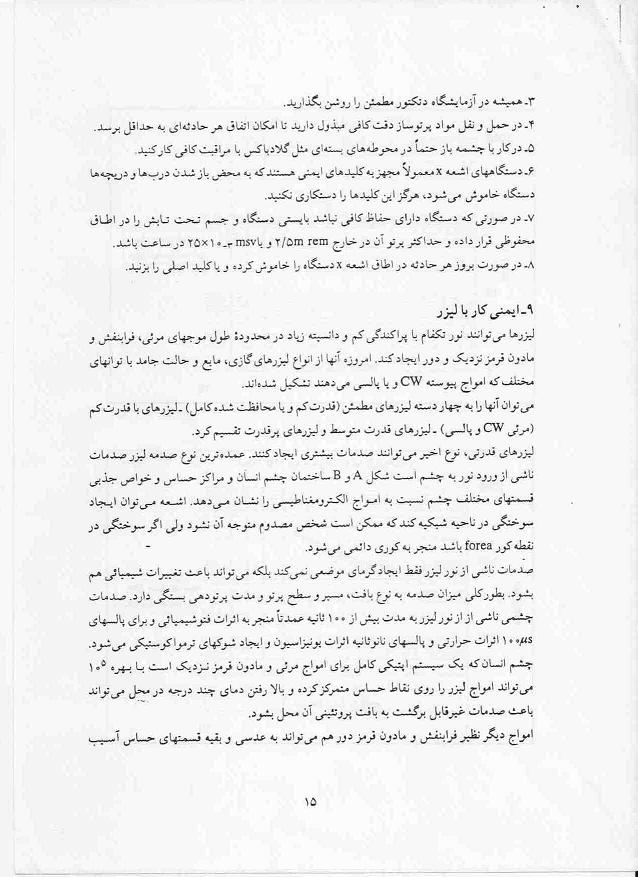 ۳ـ همیشه در آزمایشگاه دتکتور مطمئن را روشن بگذارید.
۴ـ در حمل و نقل مواد پرتوساز دقت کافی مبذول دارید تا امکان اتفاق هر حادثه‌ای به حداقل برسد.
۵ـ در کار با چشمه باز حتماً در محوطه‌های بسته‌ای مثل گلادباکس با مراقبت کافی کار کنید.
۶ـ دستگاههای اشعه x معمولاً مجهز به کلیدهای ایمنی هستند که به محض باز شدن درب‌ها و دریچه‌ها
دستگاه خاموش می‌شود، هرگز این کلیدها را دستکاری نکنید.
۷ـ در صورتی که دستگاه دارای حفاظ کافی نباشد بایستی دستگاه و جسم تحت تابش را در اطاق
محفوظی قرار داده و حداکثر پرتو آن در خارج ۲/۵m rem و یا ۲۵×۱۰-۳ msv در ساعت باشد.
۸ـ در صورت بروز هر حادثه در اطاق اشعه x دستگاه را خاموش کرده و یا کلید اصلی را بزنید.
۹ـ ایمنی کار با لیزر
لیزرها می‌توانند نور تکفام با پراکندگی کم و دانسیته زیاد در محدودهٔ طول موجهای مرئی، فرابنفش و
مادون قرمز نزدیک و دور ایجاد کند. امروزه آنها از انواع لیزرهای گازی، مایع و حالت جامد با توانهای
مختلف که امواج پیوسته CW و یا پالسی می‌دهند تشکیل شده‌اند.
می‌توان آنها را به چهار دسته لیزرهای مطمئن (قدرت کم و یا محافظت شده کامل) ـ لیزرهای با قدرت کم
(مرئی CW و پالسی) ـ لیزرهای قدرت متوسط و لیزرهای پرقدرت تقسیم کرد.
لیزرهای قدرتی، نوع اخیر می‌توانند صدمات بیشتری ایجاد کنند. عمده‌ترین نوع صدمه لیزر صدمات
ناشی از ورود نور به چشم است شکل A و B ساختمان چشم انسان و مراکز حساس و خواص جذبی
قسمتهای مختلف چشم نسبت به امواج الکترومغناطیسی را نشان می‌دهد. اشعه می‌توان ایجاد
سوختگی در ناحیه شبکیه کند که ممکن است شخص مصدوم متوجه آن نشود ولی اگر سوختگی در
نقطه کور forea باشد منجر به کوری دائمی می‌شود.
صدمات ناشی از نور لیزر فقط ایجاد گرمای موضعی نمی‌کند بلکه می‌تواند باعث تغییرات شیمیائی هم
بشود. بطور کلی میزان صدمه به نوع بافت، مسیر و سطح پرتو و مدت پرتودهی بستگی دارد. صدمات
چشمی ناشی از از نور لیزر به مدت بیش از ۱۰۰ ثانیه عمدتاً منجر به اثرات فتوشیمیائی و برای پالسهای
۱۰۰μs اثرات حرارتی و پالسهای نانوثانیه اثرات یونیزاسیون و ایجاد شوکهای ترمواکوستیکی می‌شود.
چشم انسان که یک سیستم اپتیکی کامل برای امواج مرئی و مادون قرمز نزدیک است با بهره ۱۰۵
می‌تواند امواج لیزر را روی نقاط حساس متمرکز کرده و بالا رفتن دمای چند درجه در محل می‌تواند
باعث صدمات غیرقابل برگشت به بافت پروتئینی آن محل بشود.
امواج دیگر نظیر فرابنفش و مادون قرمز دور هم می‌تواند به عدسی و بقیه قسمتهای حساس آسیب
۱۵